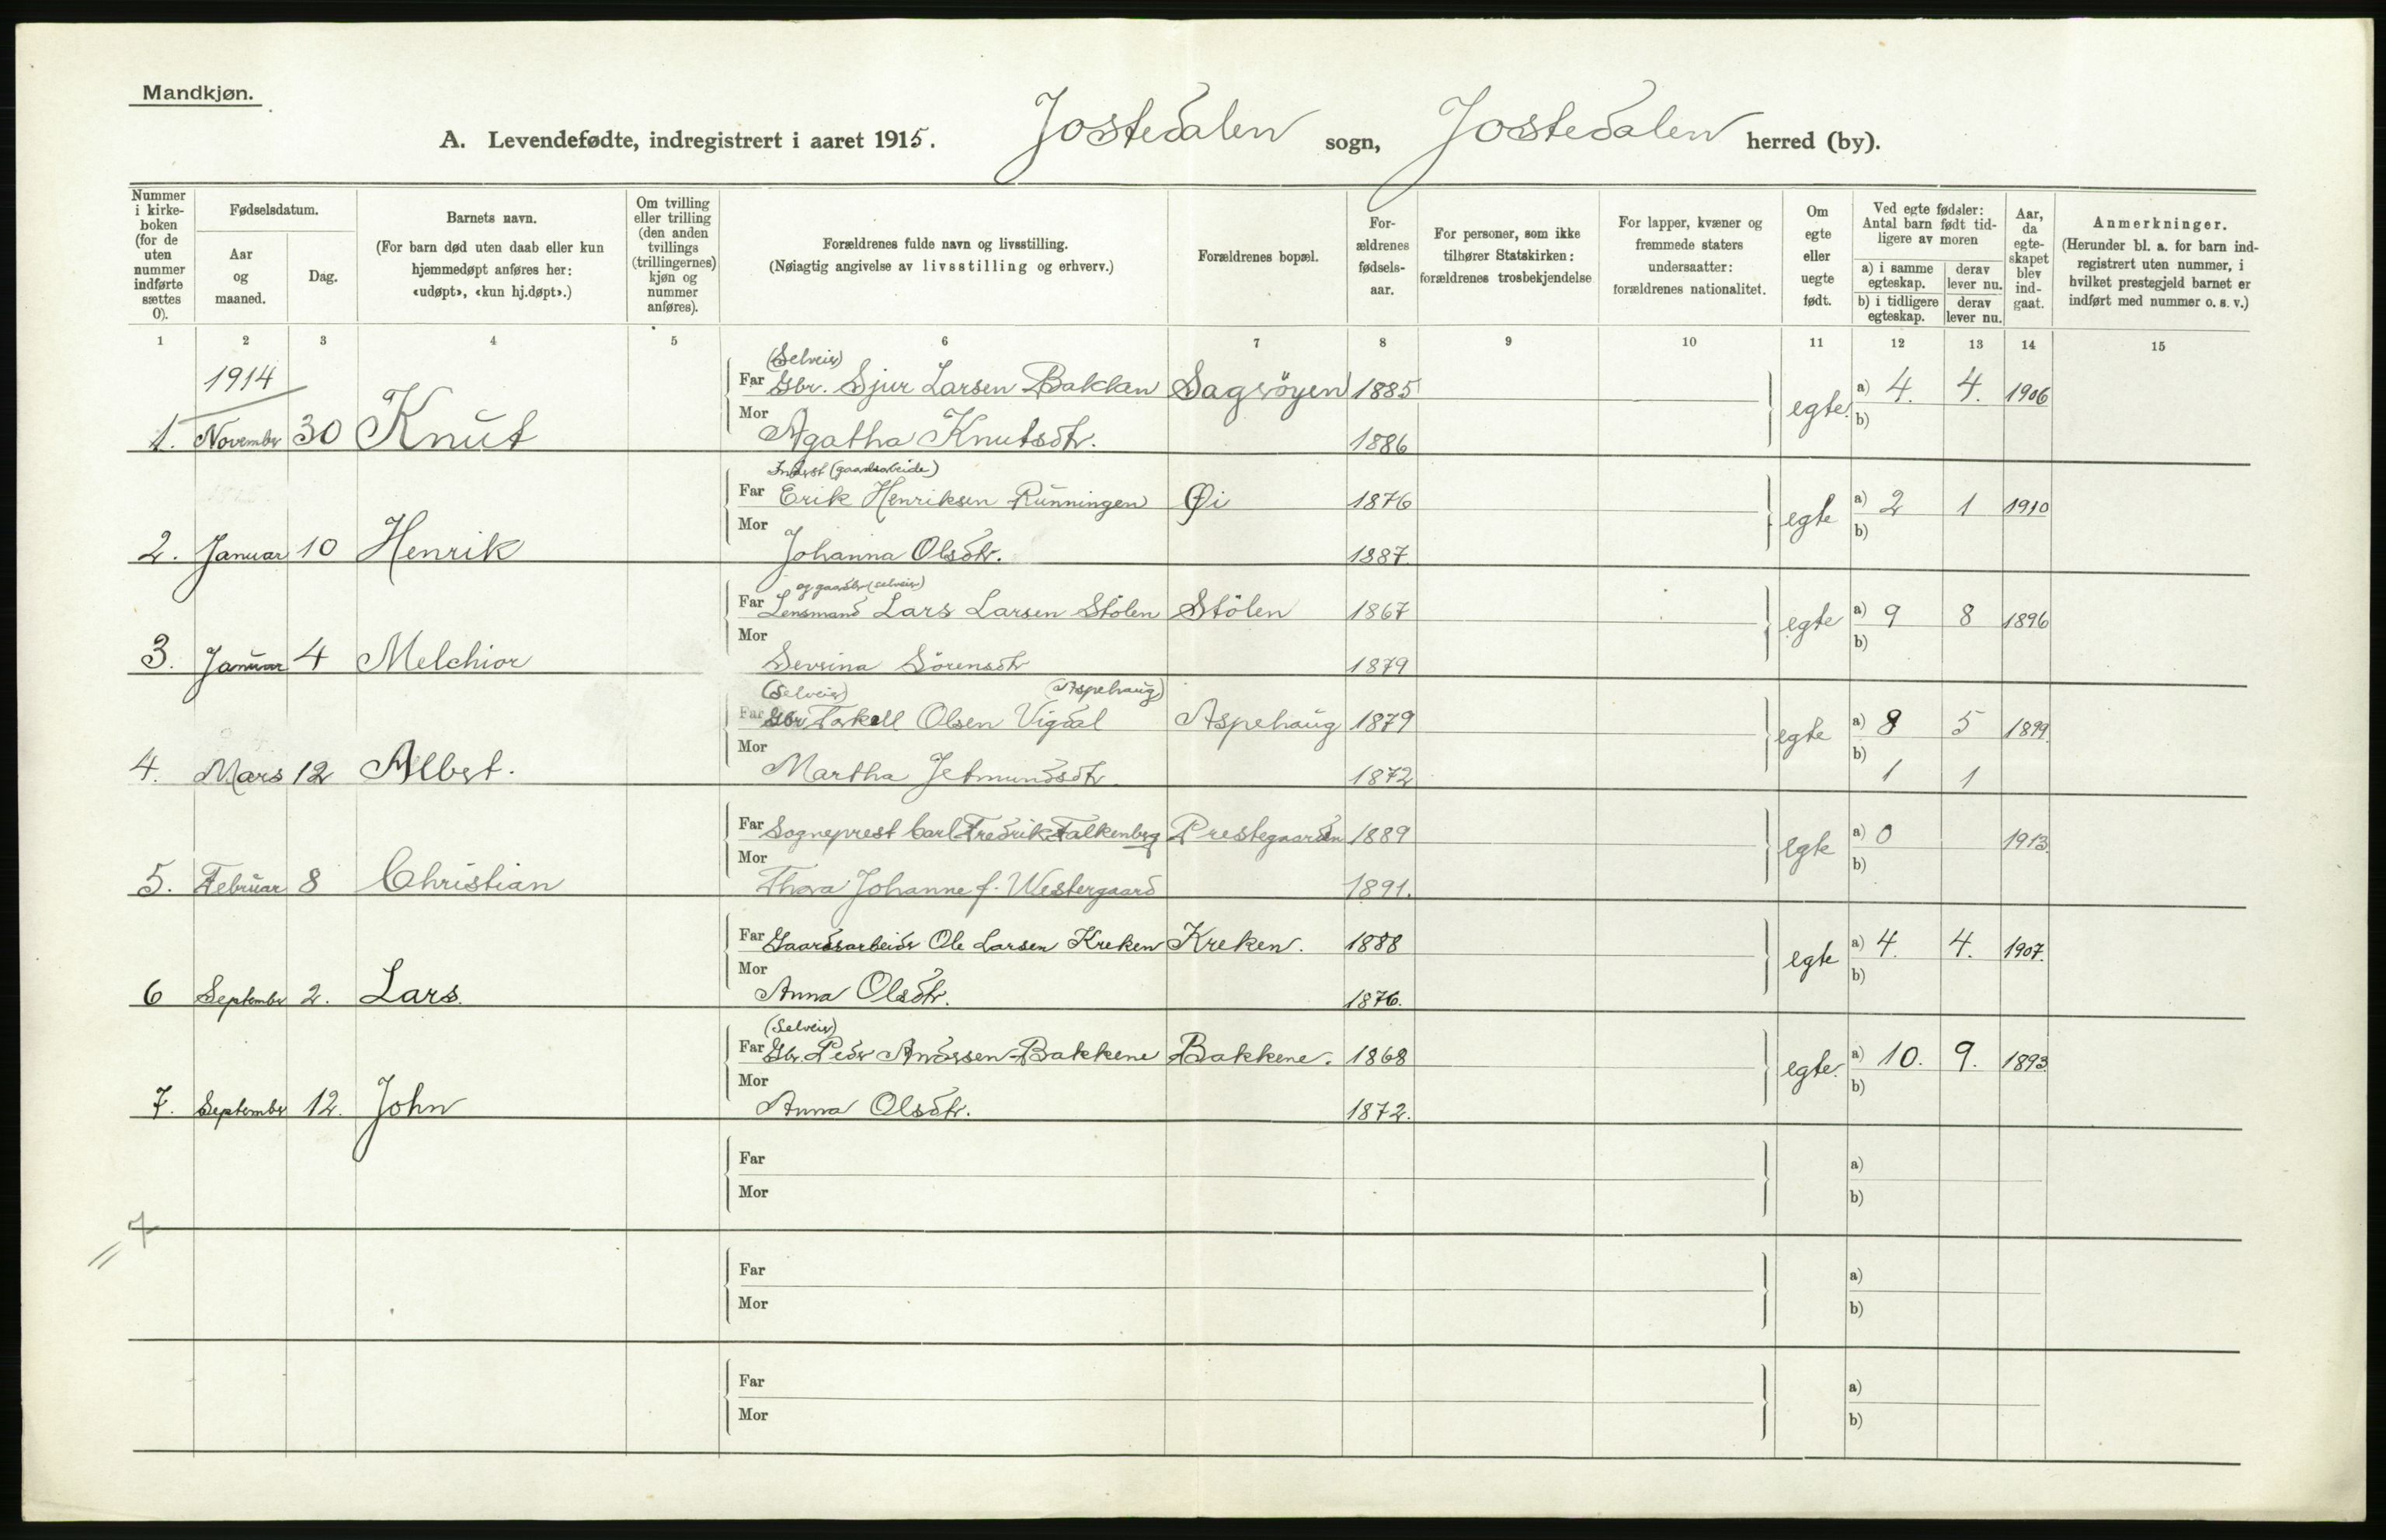 Mandkjøn.
A. Levendefødte, indregistrert i aaret 1915. Jostedalen sogn, Jostedalen herred (by).
Nummer i kirke-boken (for de uten nummer indførte sættes 0).
Fødselsdatum.
Aar og maaned.
Dag.
Barnets navn.
(For barn død uten daab eller kun hjemmedøpt anføres her: «udøpt», «kun hj.døpt».)
Om tvilling eller trilling (den anden tvillings (trillingernes) kjøn og nummer anføres).
Forældrenes fulde navn og livsstilling.
(Nøiagtig angivelse av livsstilling og erhverv.)
Forældrenes bopæl.
For-ældrenes fødsels-aar.
For personer, som ikke tilhører Statskirken: forældrenes trosbekjendelse
For lapper, kvæner og fremmede staters undersaatter: forældrenes nationalitet.
Om egte eller uegte født.
Ved egte fødsler: Antal barn født tid-ligere av moren
a) i samme egteskap.
derav lever nu.
b) i tidligere egteskap.
derav lever nu.
Aar, da egte-skapet blev ind-gaat.
Anmerkninger.
(Herunder bl. a. for barn ind-registrert uten nummer, i hvilket prestegjeld barnet er indført med nummer o. s. v.)
1 2 3 4 5 6 7 8 9 10 11 12 13 14 15
1914
(Selveier)
Far Gbr. Sjur Larsen Bakken Sagrøyen 1885 egte. a) 4. 4. 1906
1. November 30 Knut Mor Agatha Knutsdtr. 1886 b)
Inderst (gaardsarbeide)
Far Erik Henriksen Rünningen Øi 1876 egte a) 2 1 1910
2. Januar 10 Henrik Mor Johanna Olsdtr. 1887. b)
og gaardbr (selveier)
Far Lensmand Lars Larsen Stölen Stölen 1867 egte a) 9 8 1896
3. Januar 4 Melchior Mor Sevrina Sörensdtr 1879 b)
(Selveier) (Aspehaug)
Far Gbr Torkell Olsen Vigdal Aspehaug 1879 egte a) 8 5 1899.
4. Mars 12 Albert. Mor Martha Jetmundsdtr. 1872 b) 1 1
Far Sogneprest Carl Fredrik Falkenberg Prestegaarden 1889 egte a) 0 1913.
5. Februar 8 Christian Mor Thora Johanne f. Westergaard 1891. b)
Far Gaardsarbeider Ole Larsen Kreken Kreken. 1888 egte a) 4. 4. 1907.
6 September 2. Lars. Mor Anna Olsdtr. 1876. b)
(Selveier)
Far Gbr. Peder Andersen Bakkene Bakkene. 1868 egte. a) 10. 9. 1893.
7. September 12. John Mor Anna Olsdtr. 1872. b)
Far a)
Mor b)
7
Far a)
Mor b)
Far a)
Mor b)